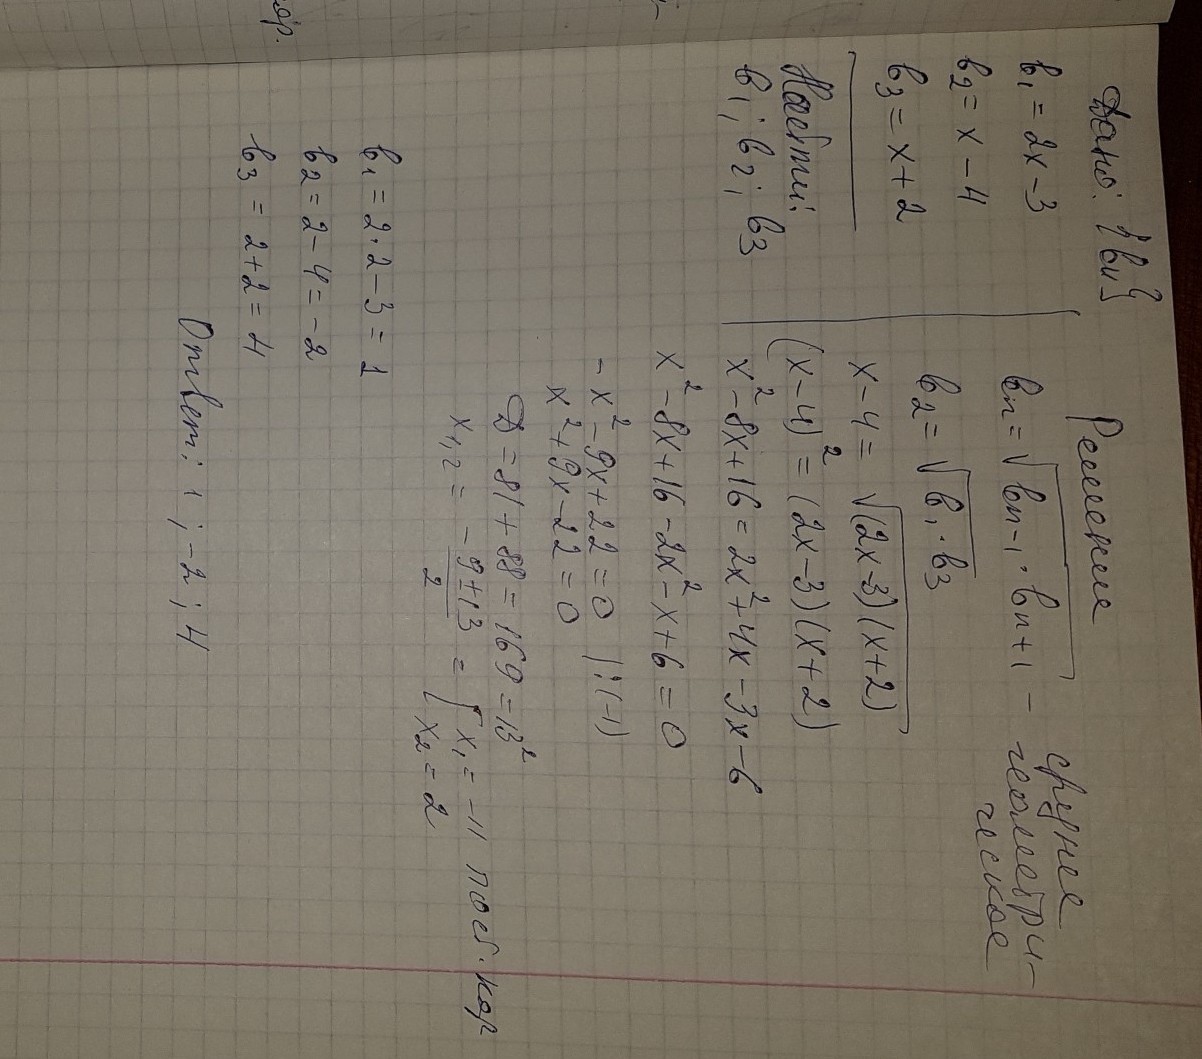 ор.
Дано: {bn}
b₁ = 2x - 3
b₂ = x - 4
b₃ = x + 2
Найти:
b₁; b₂; b₃
Решение
bn = √(bn-1 · bn+1) - средне
геометри-
ческое
b₂ = √(b₁ · b₃)
x - 4 = √((2x-3)(x+2))
(x - 4)² = (2x - 3)(x + 2)
x² - 8x + 16 = 2x² + 4x - 3x - 6
x² - 8x + 16 - 2x² - x + 6 = 0
- x² - 9x + 22 = 0 | :(-1)
x² + 9x - 22 = 0
D = 81 + 88 = 169 = 13²
x₁,₂ = (-9 ± 13)/2 = [ x₁ = -11 пост. кор
x₂ = 2
b₁ = 2·2 - 3 = 1
b₂ = 2 - 4 = -2
b₃ = 2 + 2 = 4
Ответ: 1; -2; 4